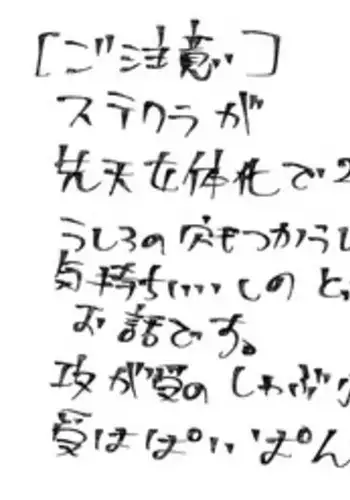 [ご注意]
ステクラが
先天女体化で2
うしろの穴もつかうし
気持ちいいしのと、
お話です。
攻が受のしゃぶり
受はぱいぱん